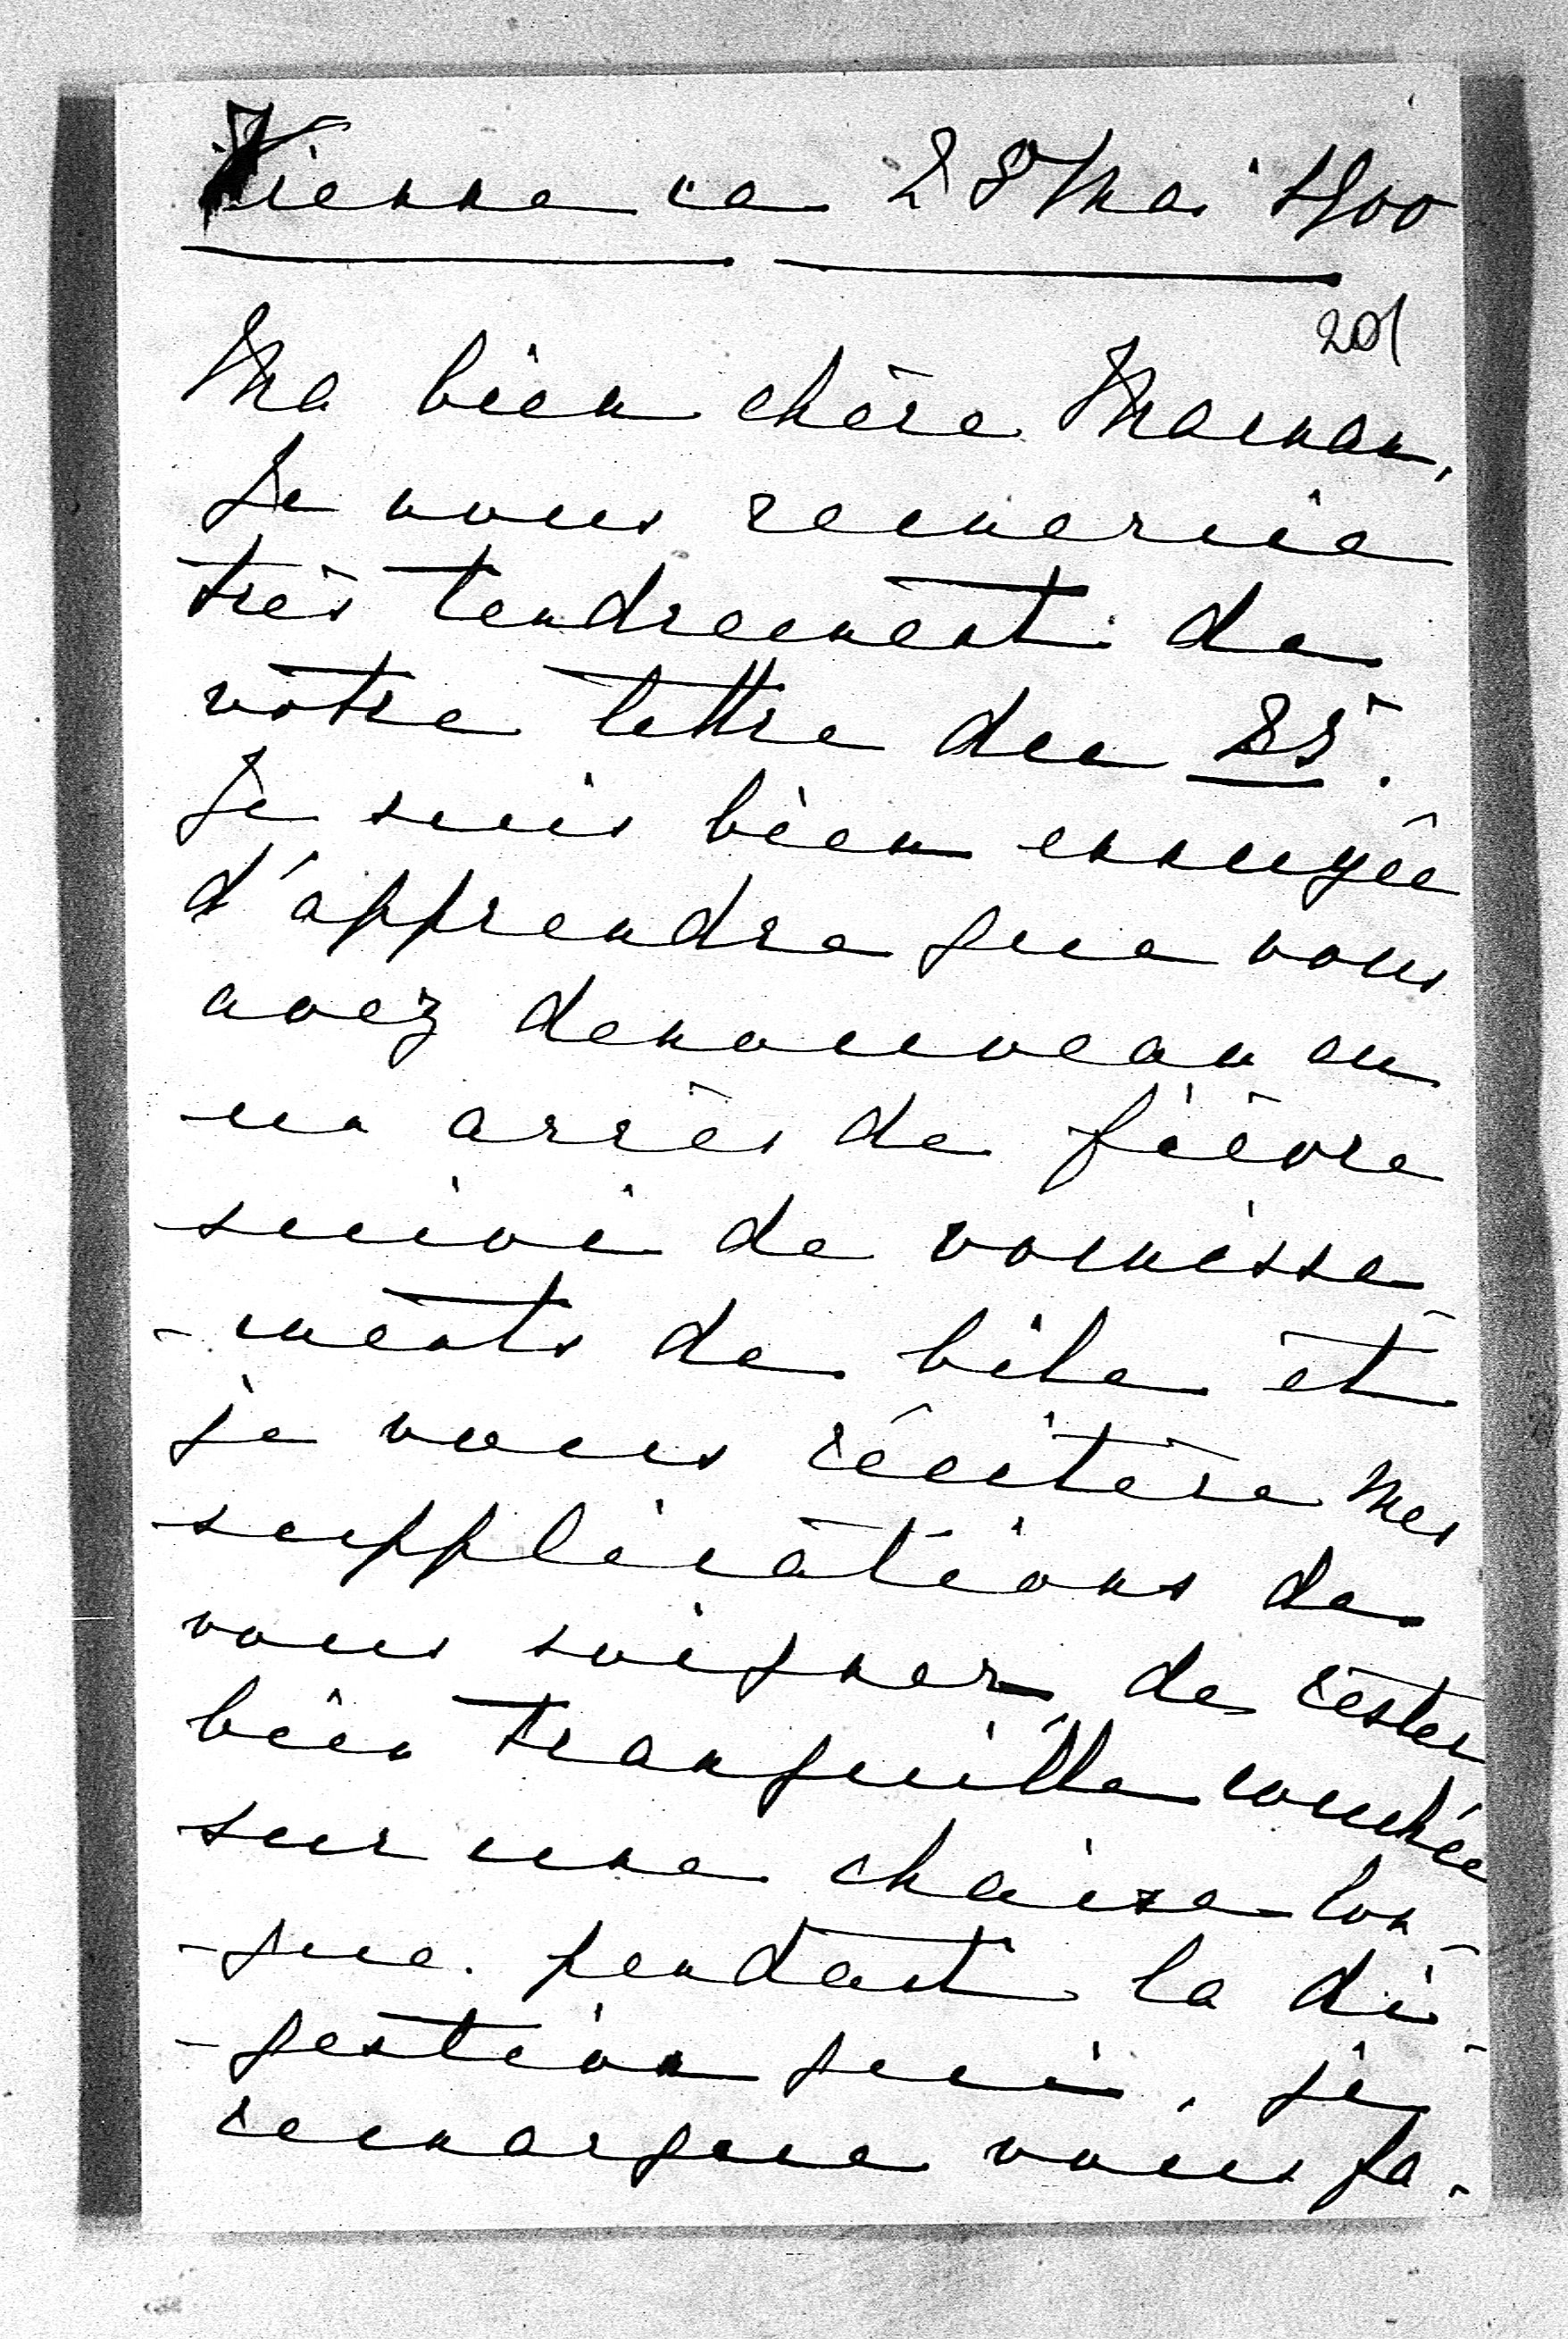 Vienne ce 28 Mai 1900
201
Ma bien chère Maman,
Je vous remercie
très tendrement de
votre lettre du 25.
Je suis bien ennuyée
d'apprendre que vous
avez denouveau eu
un accès de fièvre
suivi de vomisse-
-ments de bile et
je vous réitère mes
supplications de
vous soigner, de rester
bien tranquille couchée
sur une chaise-lon-
-gue. pendant la di-
-gestion qui, je
remarque vous fa-